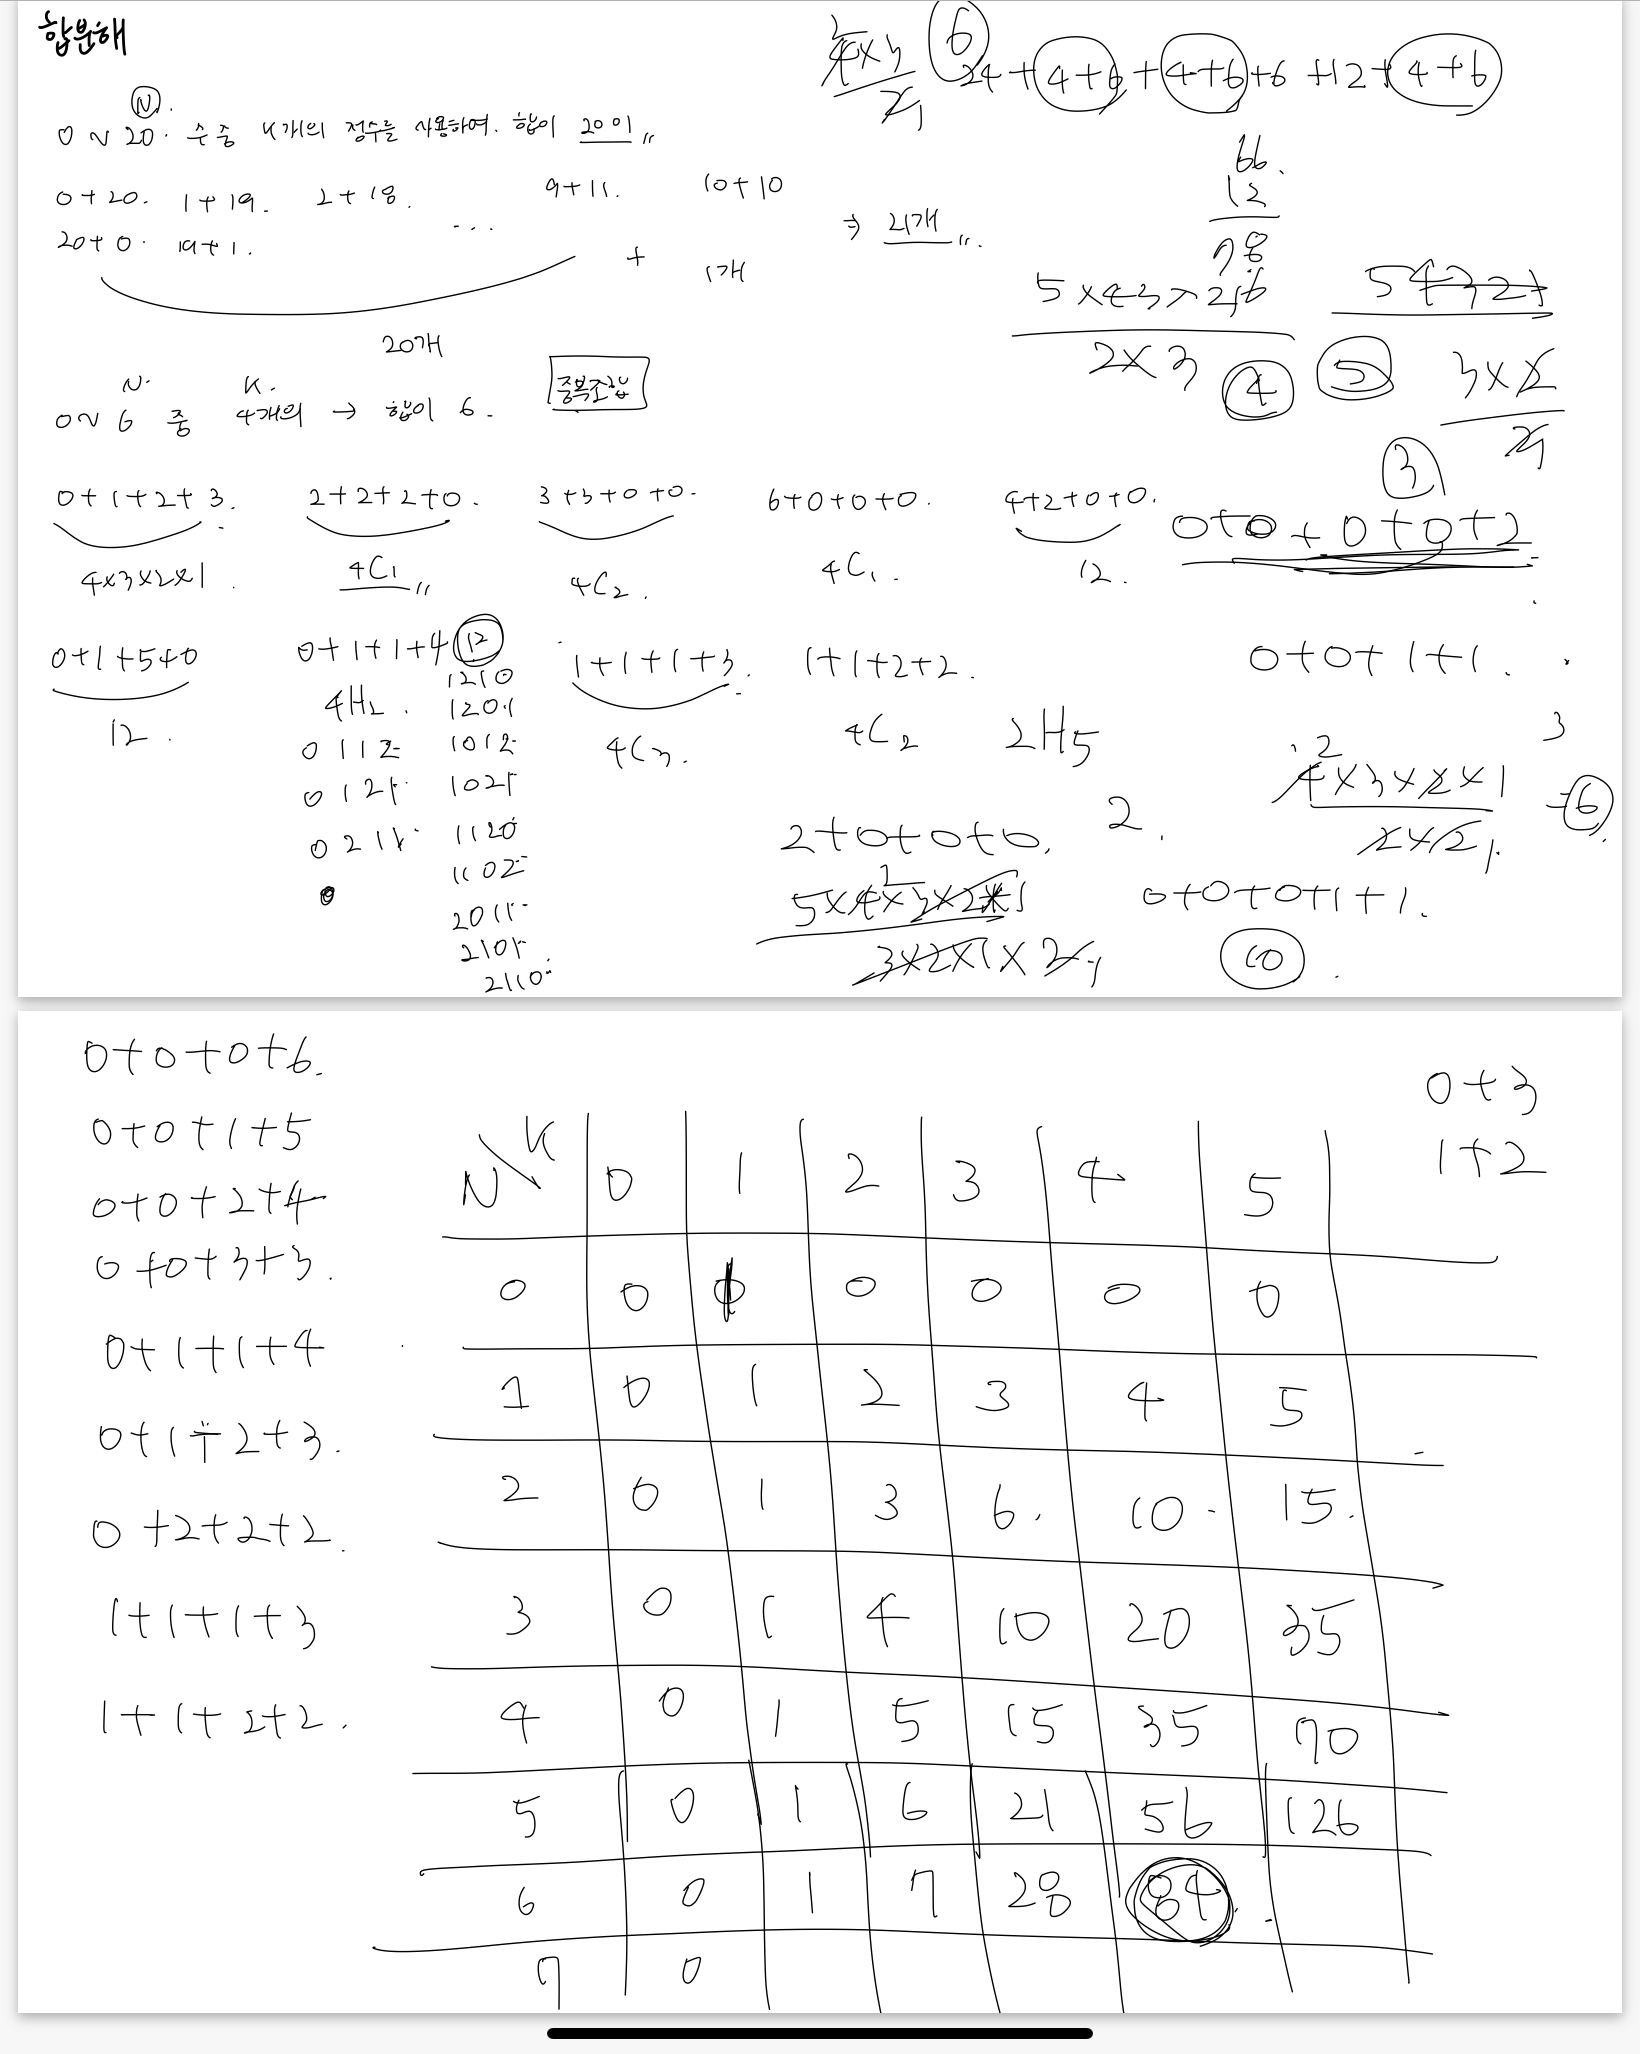 합분해
N.
0 ~ 20. 수 중 K개의 정수를 사용하여. 합이 20 이
0+20. 1+19. 2+18. 9+11. 10+10
20+0. 19+1. ... + 1개 ⇒ 21개
20개
N. K.
0~6 중 4개의 → 합이 6. 중복조합
24+4+6+4+6+6+12+4+6
66.
12
78
4
5
3
0+1+2+3. 2+2+2+0. 3+3+0+0. 6+0+0+0. 4+2+0+0. 0+0+0+0+2
4×3×2×1. 4C1 4C2. 4C1. 12.
0+1+5+0 0+1+1+4 12 1+1+1+3. 1+1+2+2. 0+0+1+1.
12. 4H2. 4C3. 4C2 2H5
1210
1201
0112 1012
0121 1021
0211 1120
1102
2011
2101
2110
2+0+0+0. 2.
4×3×2×1 = 6
2×2
5×4×3×2×1
3×2×1×2
0+0+0+1+1.
10.
0+0+0+6.
0+0+1+5
0+0+2+4
0+0+3+3.
0+1+1+4
0+1+2+3.
0+2+2+2.
1+1+1+3
1+1+2+2.
0+3
1+2
N\K 0 1 2 3 4 5
0 0 1 0 0 0 0
1 0 1 2 3 4 5
2 0 1 3 6. 10. 15.
3 0 1 4 10 20 35
4 0 1 5 15 35 70
5 0 1 6 21 56 126
6 0 1 7 28 84.
7 0